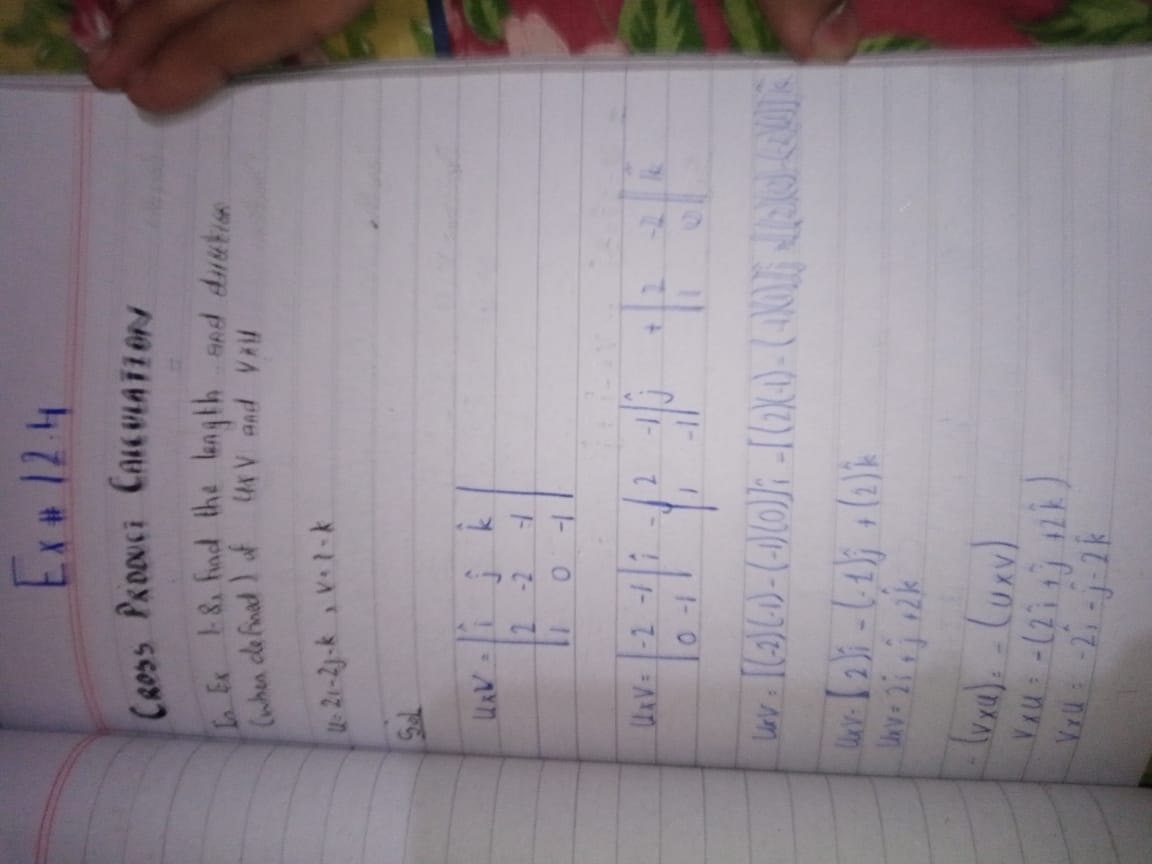 Ex # 12.4
CROSS PRODUCT CALCULATION
In Ex 1-8, find the length and direction
(when defined) of UxV and VxU
U= 2i-2j-k , V= i-k
Sol
UxV = | î ĵ k̂ |
| 2 -2 -1 |
| 1 0 -1 |
UxV = | -2 -1 | î - | 2 -1 | ĵ + | 2 -2 | k̂
| 0 -1 | | 1 -1 | | 1 0 |
UxV = [(-2)(-1)-(-1)(0)]î -[(2)(-1)-(-1)(1)]ĵ +[(2)(0)-(-2)(1)]k̂
UxV= [2]î - (-1)ĵ + (2)k̂
UxV= 2î + ĵ +2k̂
(VxU) = - (UxV)
VxU = -(2î + ĵ +2k̂)
VxU = -2î -ĵ -2k̂